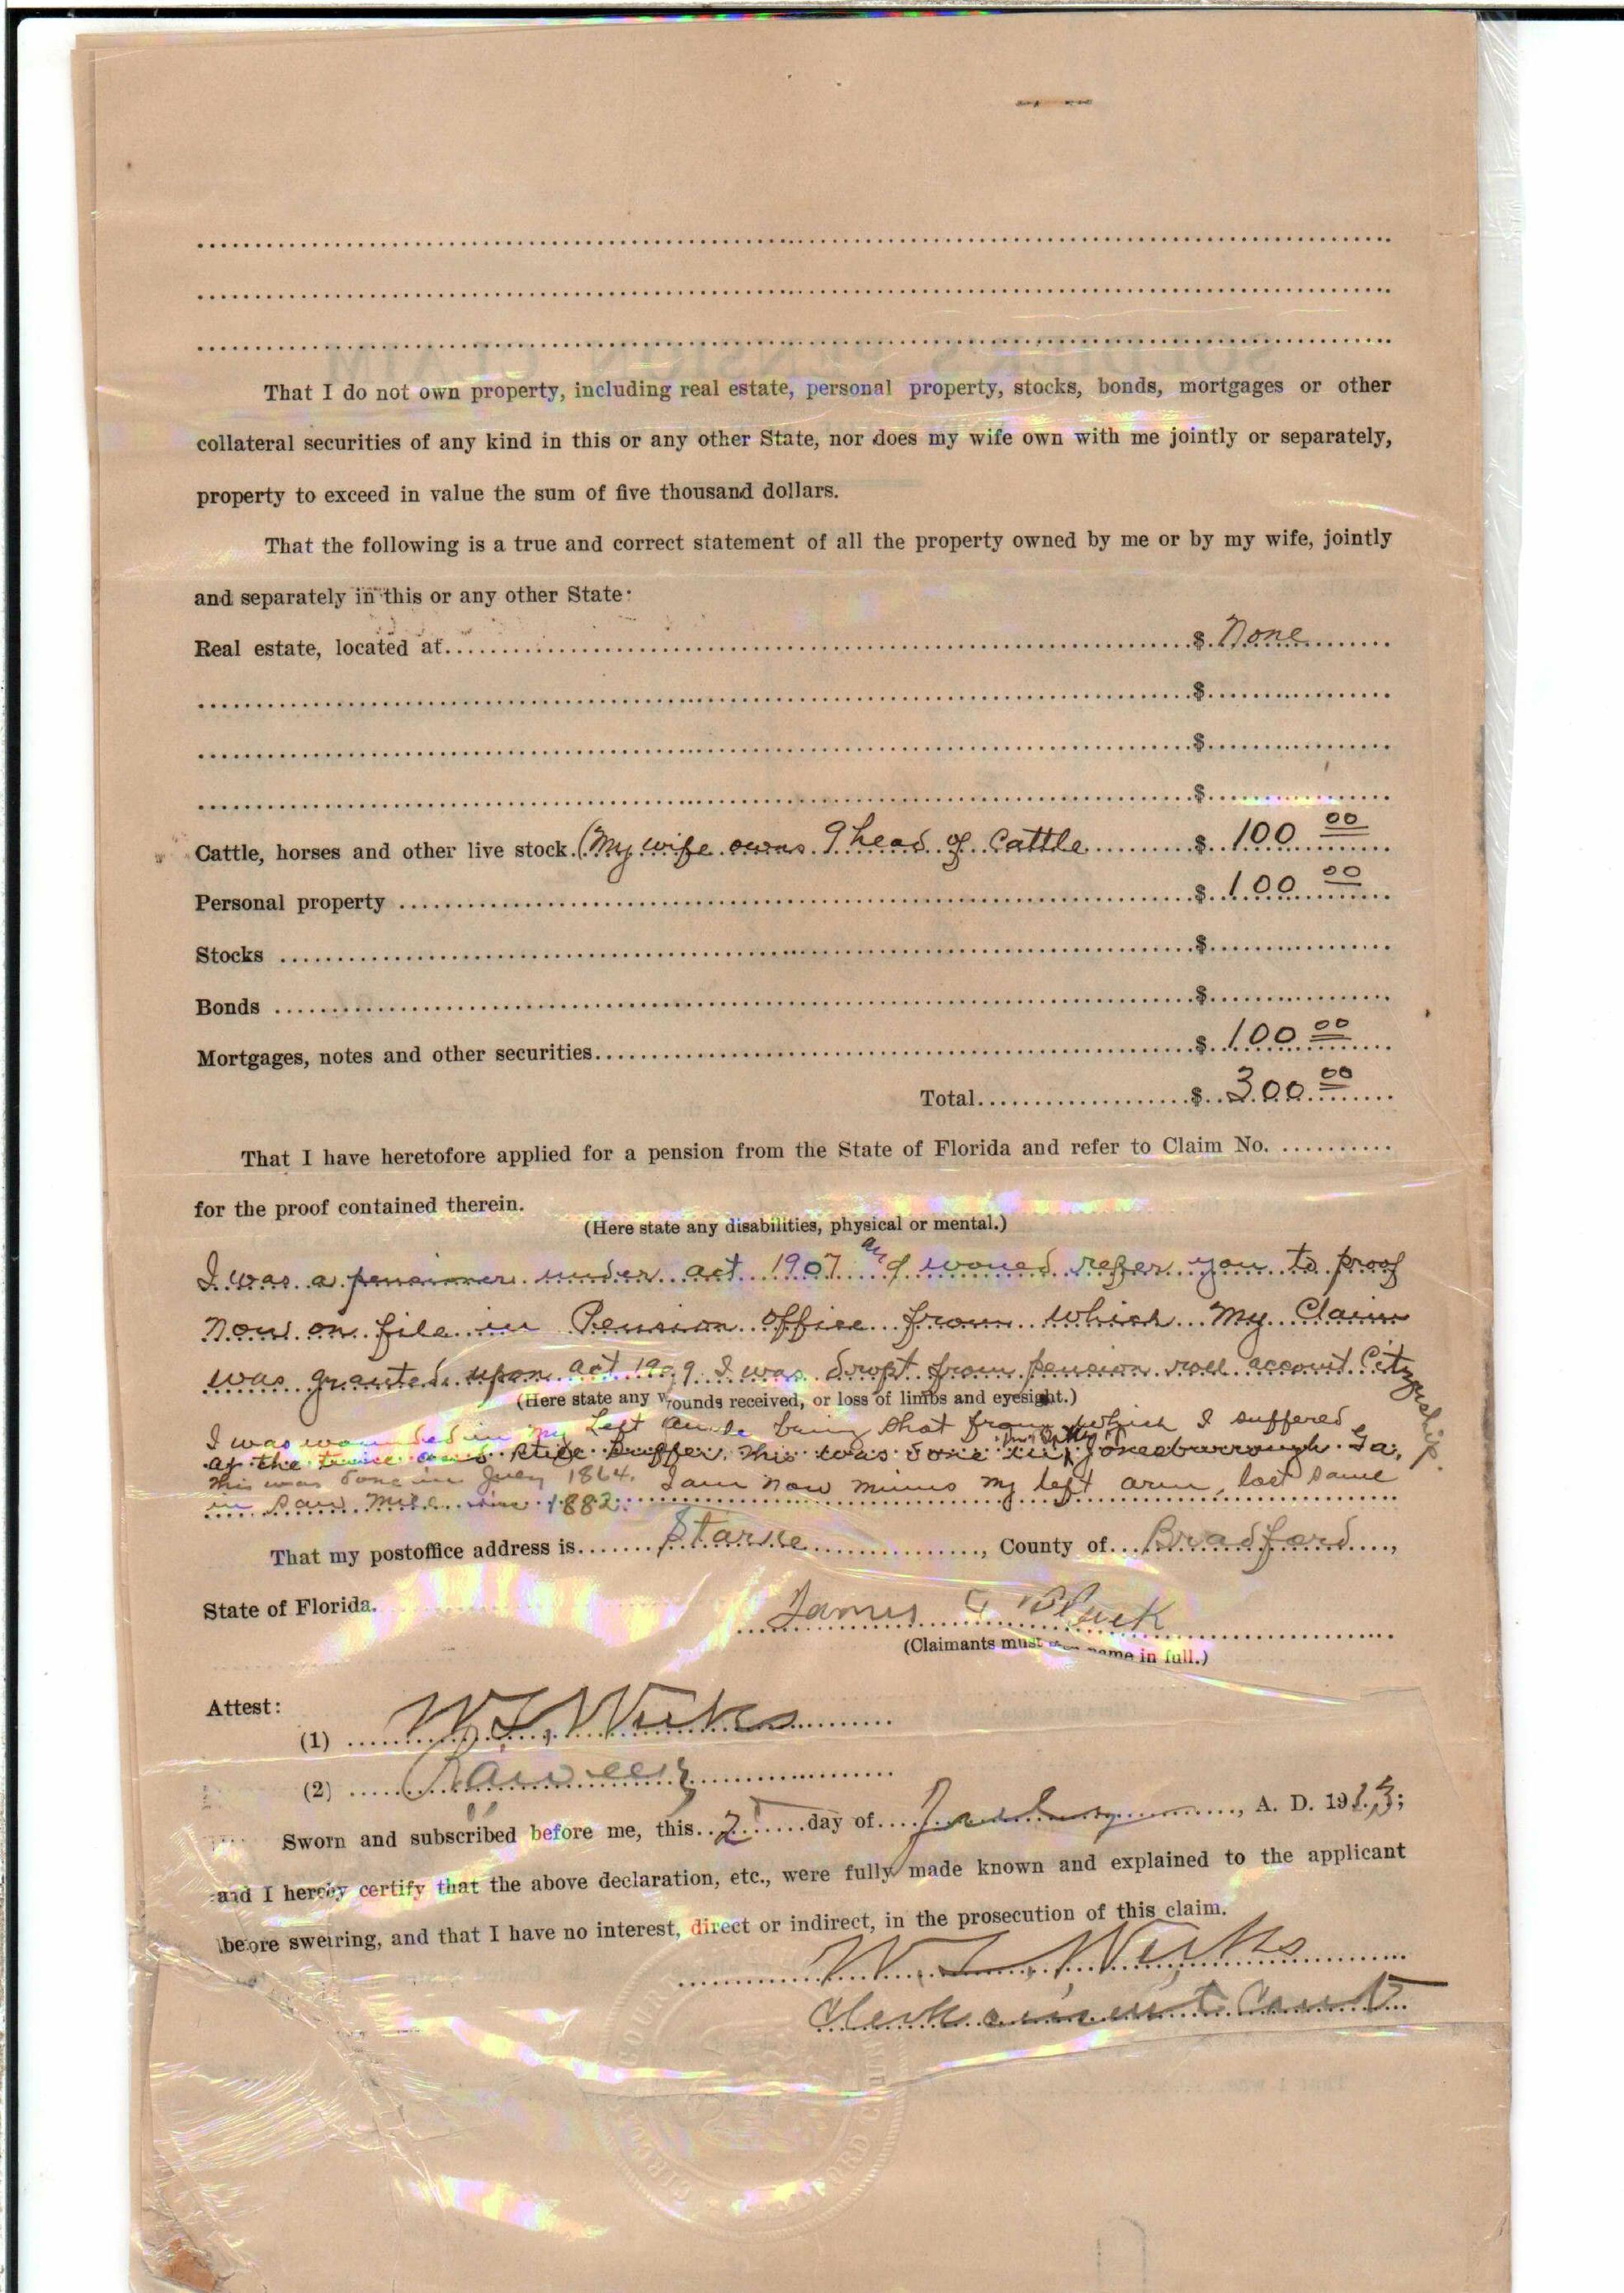 That I do not own property, including real estate, personal property, stocks, bonds, mortgages or other
collateral securities of any kind in this or any other State, nor does my wife own with me jointly or separately,
property to exceed in value the sum of five thousand dollars.
That the following is a true and correct statement of all the property owned by me or by my wife, jointly
and separately in this or any other State:
Real estate, located at $ None
$
$
$
Cattle, horses and other live stock (My wife owns 9 head of Cattle $ 100 00
Personal property $ 100 00
Stocks $
Bonds $
Mortgages, notes and other securities $ 100 00
Total $ 300 00
That I have heretofore applied for a pension from the State of Florida and refer to Claim No.
for the proof contained therein.
(Here state any disabilities, physical or mental.)
I was a pensioner under act 1907 and would refer you to proof
now on file in Pension office from which my Claim
was granted upon act 1909 I was dropt from pension roll account Citizenship.
(Here state any wounds received, or loss of limbs and eyesight.)
I was wounded in my Left being shot from which I suffered
at the time and still suffer. This was done in Jonesburrough Ga,
This was done in July 1864. I am now minus my left arm, lost same
in Saw Mill in 1882.
That my postoffice address is Starke, County of Bradford,
State of Florida.
James
(Claimants must name in full.)
Attest:
(1) W. L. Weeks
(2)
Sworn and subscribed before me, this 2 day of , A. D. 1913;
and I hereby certify that the above declaration, etc., were fully made known and explained to the applicant
before swearing, and that I have no interest, direct or indirect, in the prosecution of this claim.
W. L. Weeks
Clerk Circuit Court